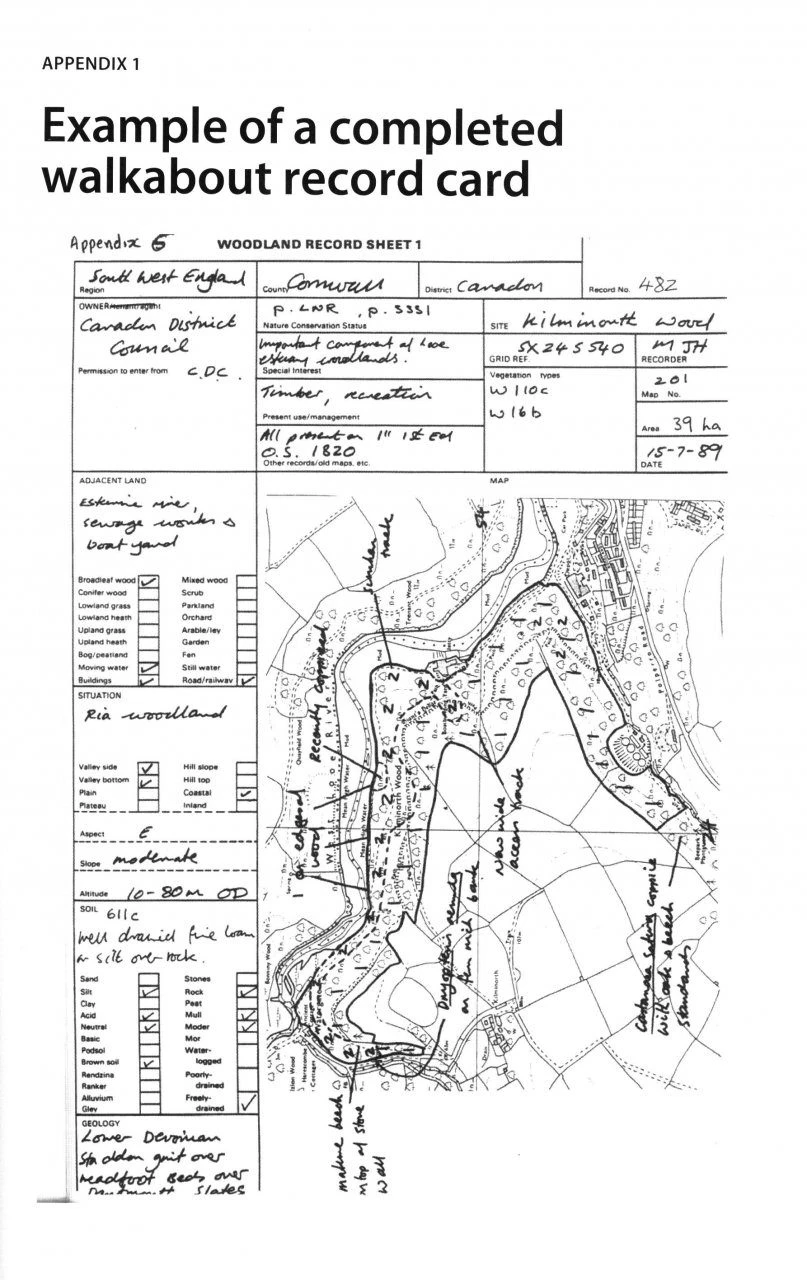 APPENDIX 1
Example of a completed
walkabout record card
Appendix 5
WOODLAND RECORD SHEET 1
South West England
Region
County Cornwall
District Caradon
Record No. 482
OWNER
Caradon District
Council
Permission to enter from C.D.C.
p. LNR, p. SSSI
Nature Conservation Status
Important component of Looe
estuary woodlands.
Special Interest
Timber, recreation
Present use/management
All present on 1" 1st Ed
O.S. 1820
Other records/old maps, etc.
SITE Kilminouth Wood
SX 245 540
GRID REF.
MJH
RECORDER
Vegetation types
W110c
W16b
201
Map No.
Area 39 ha
15-7-89
DATE
ADJACENT LAND
Estuarine river,
sewage works &
boat yard
Broadleaf wood
Mixed wood
Conifer wood
Scrub
Lowland grass
Parkland
Lowland heath
Orchard
Upland grass
Arable/ley
Upland heath
Garden
Bog/peatland
Fen
Moving water
Still water
Buildings
Road/railway
SITUATION
Ria woodland
Valley side
Hill slope
Valley bottom
Hill top
Plain
Coastal
Plateau
Inland
Aspect E
Slope moderate
Altitude 10-80m OD
SOIL 611c
Well drained fine loam
or silt over rock.
Sand
Stones
Silt
Rock
Clay
Peat
Acid
Mull
Neutral
Moder
Basic
Mor
Podsol
Water-
Brown soil
logged
Rendzina
Poorly-
Ranker
drained
Alluvium
Freely-
Gley
drained
GEOLOGY
Lower Devonian
Staddon grit over
Meadfoot Beds over
Dartmouth Slates
MAP
similar
track
Recently coppiced
on edge of
wood
Now wide
access track
Dryopteris aemula
on fern rich bank
Castanea sativa coppice
with oak & beech
standards
mature beech
on top of stone
wall
Kilminorth Woods
West Looe River
Mean High Water
Mud
Trenant Wood
Car Park
Polperro Road
Kilminorth
Cottages
54
24